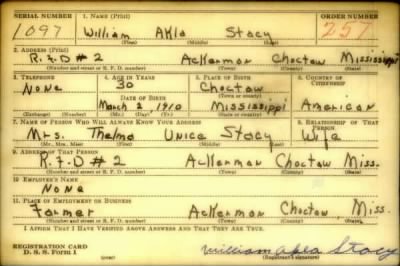 SERIAL NUMBER 1. NAME (Print) ORDER NUMBER
1097 William Akla Stacy 257
(First) (Middle) (Last)
2. ADDRESS (Print)
R.F.D # 2 Ackerman Choctaw Mississippi
(Number and street or R. F. D. number) (Town) (County) (State)
3. TELEPHONE 4. AGE IN YEARS 5. PLACE OF BIRTH 6. COUNTRY OF CITIZENSHIP
None 30 Choctaw
DATE OF BIRTH (Town or county)
March 2, 1910 Mississippi American
(Exchange) (Number) (Mo.) (Day) (Yr.) (State or country)
7. NAME OF PERSON WHO WILL ALWAYS KNOW YOUR ADDRESS 8. RELATIONSHIP OF THAT PERSON
Mrs. Thelma Unice Stacy Wife
(Mr., Mrs., Miss) (First) (Middle) (Last)
9. ADDRESS OF THAT PERSON
R.F.D # 2 Ackerman Choctaw Miss.
(Number and street or R. F. D. number) (Town) (County) (State)
10. EMPLOYER'S NAME
None
11. PLACE OF EMPLOYMENT OR BUSINESS
Farmer Ackerman Choctaw Miss.
(Number and street or R. F. D. number) (Town) (County) (State)
I AFFIRM THAT I HAVE VERIFIED ABOVE ANSWERS AND THAT THEY ARE TRUE.
REGISTRATION CARD
D. S. S. Form 1 William Akla Stacy
(Registrant's signature)